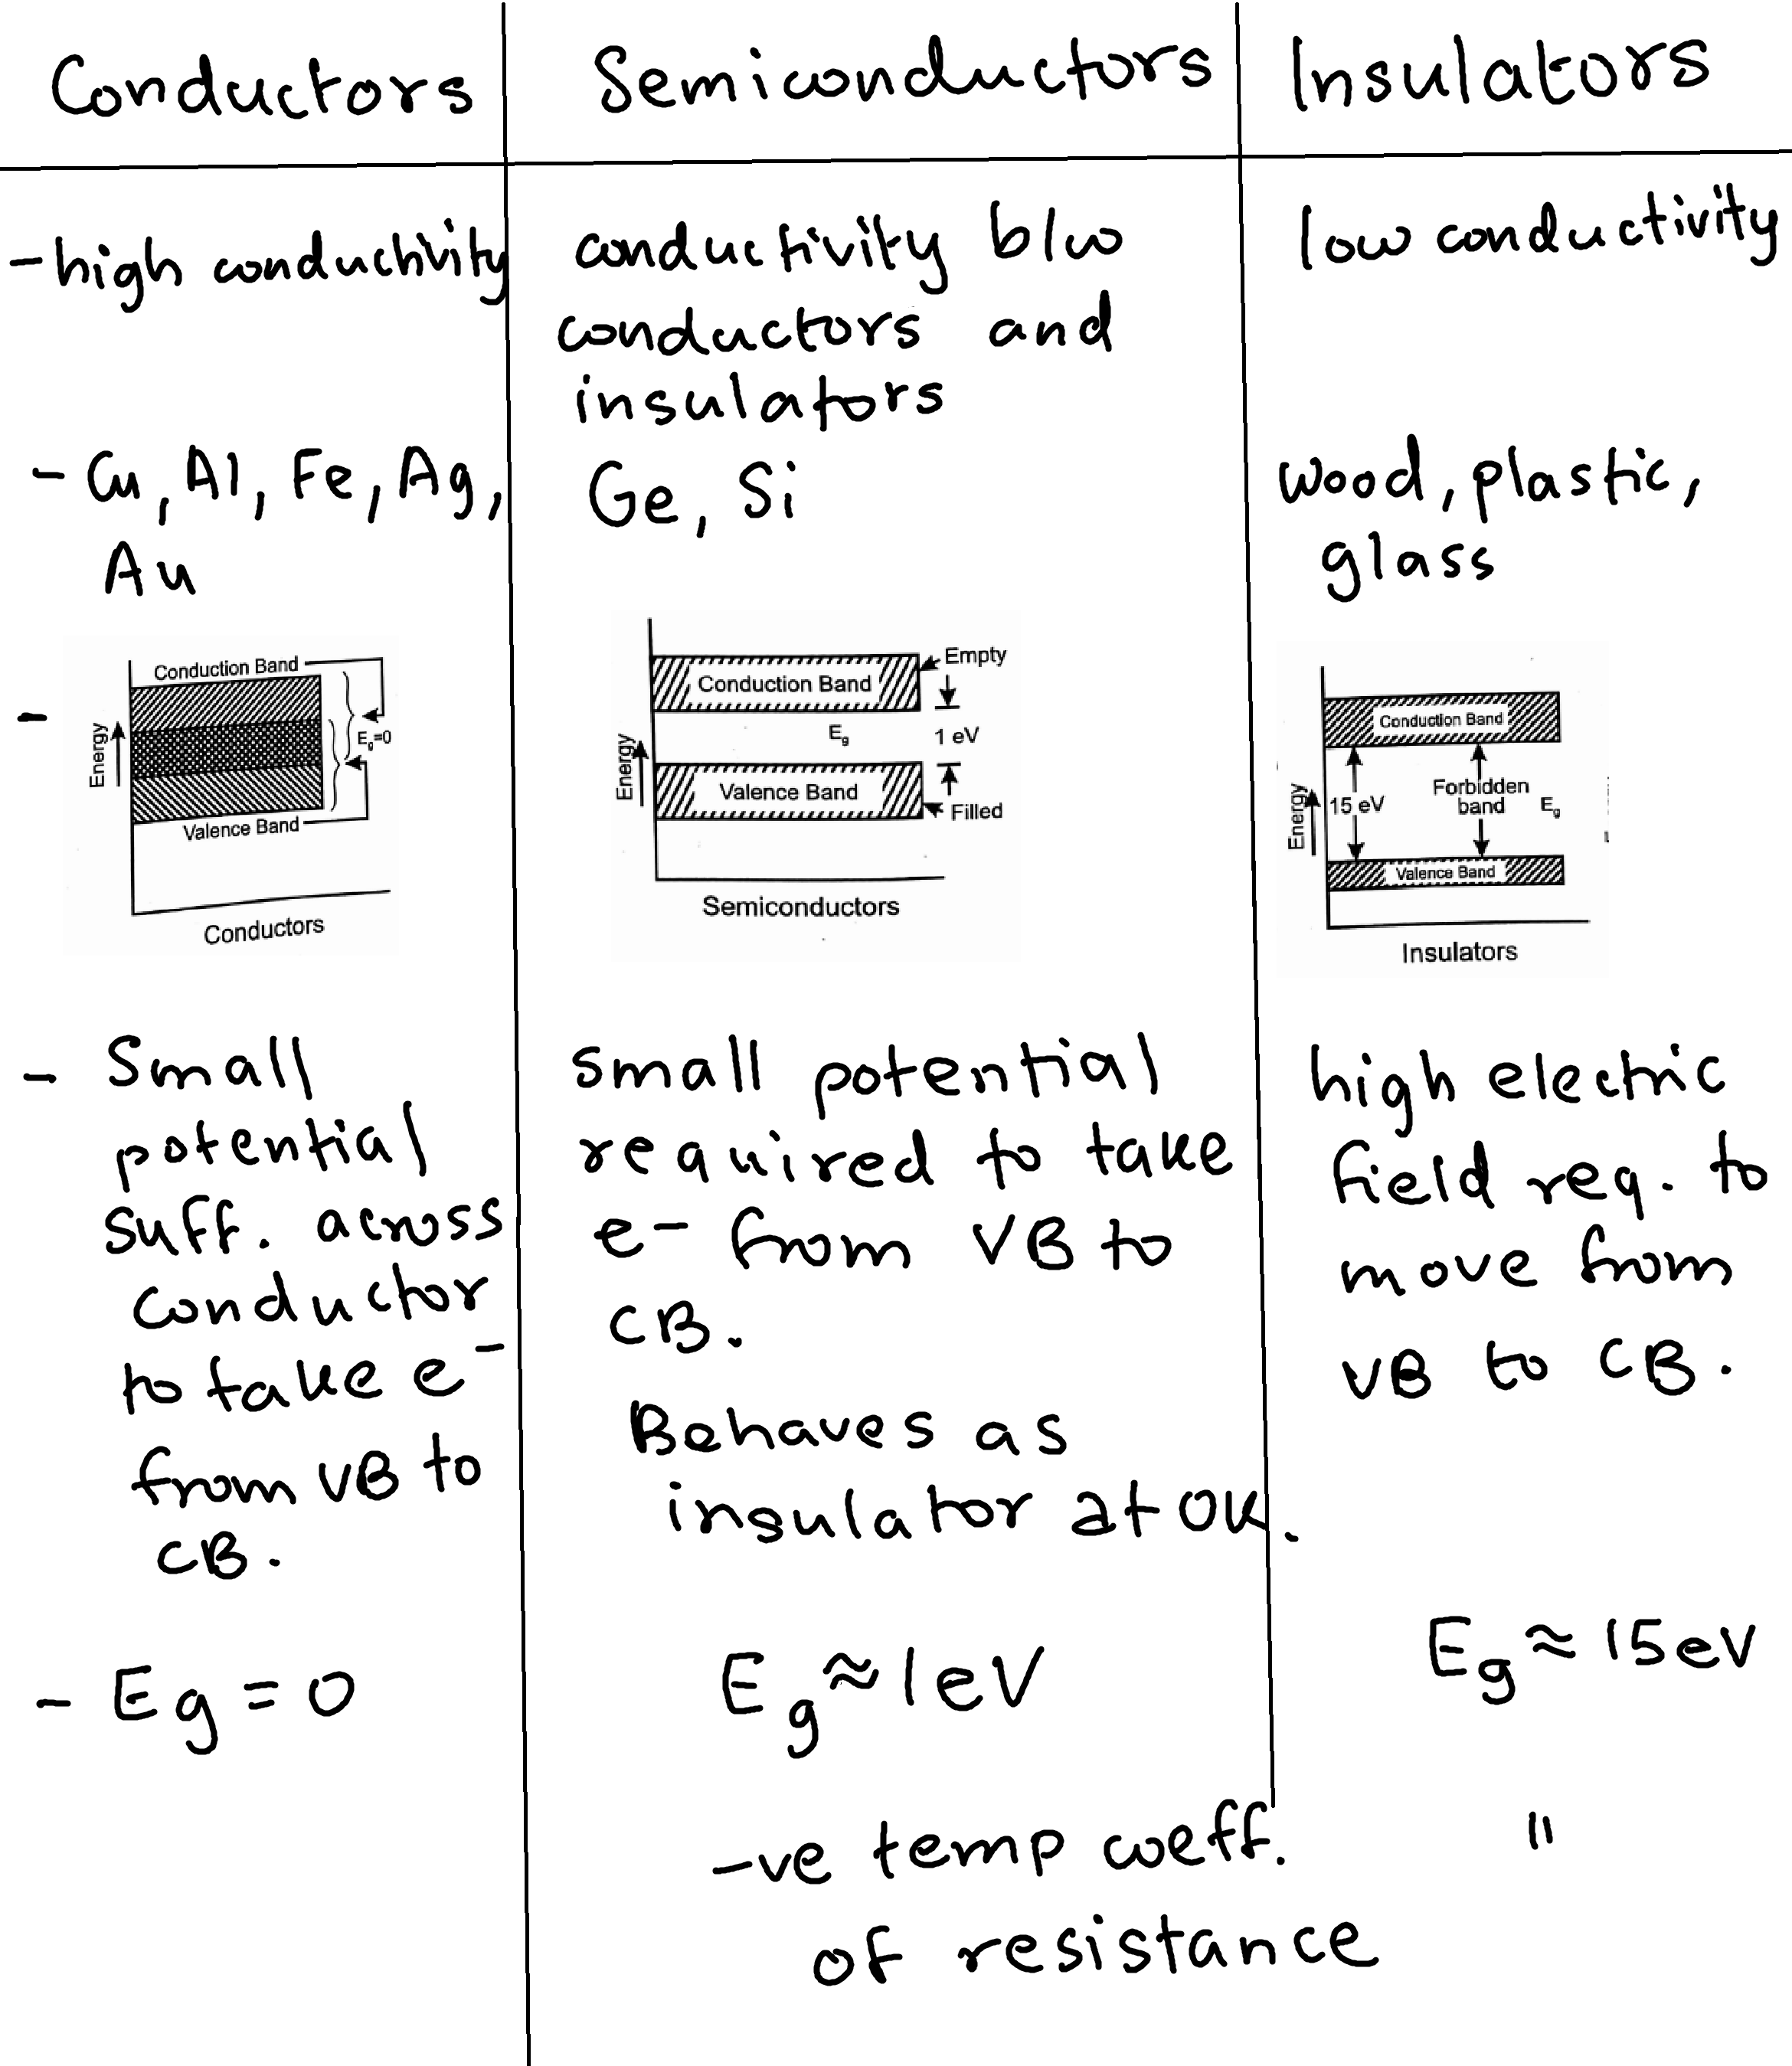 Conductors
Semiconductors
Insulators
-high conductivity
conductivity b/w
conductors and
insulators
low conductivity
- Cu, Al, Fe, Ag,
Au
Ge, Si
wood, plastic,
glass
-
Conduction Band
Energy
Eg=0
Valence Band
Conductors
Empty
Conduction Band
Eg
1 eV
Energy
Valence Band
Filled
Semiconductors
Conduction Band
Energy
15 eV
Forbidden
band
Eg
Valence Band
Insulators
- Small
potential
suff. across
conductor
to take e-
from VB to
CB.
small potential
required to take
e- from VB to
CB.
Behaves as
insulator at 0K.
high electric
field req. to
move from
VB to CB.
- Eg = 0
Eg ≈ 1eV
Eg ≈ 15eV
-ve temp coeff.
of resistance
"